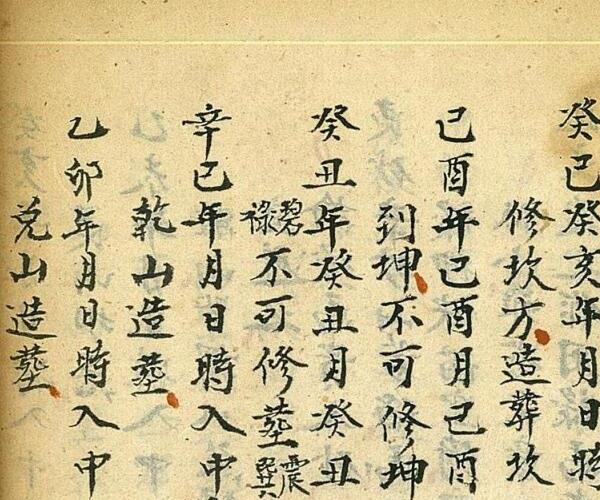 癸巳癸亥年月日時
修坎方造葬坎
己酉年己酉月己酉
到坤不可修坤
癸丑年癸丑月癸丑
碧祿不可修墓震巽
辛巳年月日時入中
乾山造墓
乙卯年月日時入中
兌山造墓